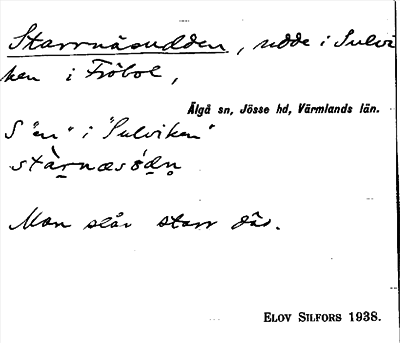 Starrnäsudden, udde i Sulvi
ken i Fröbol,
Älgå sn, Jösse hd, Värmlands län.
S "en" i "Sulviken"
Man slår starr där.
ELOV SILFORS 1938.